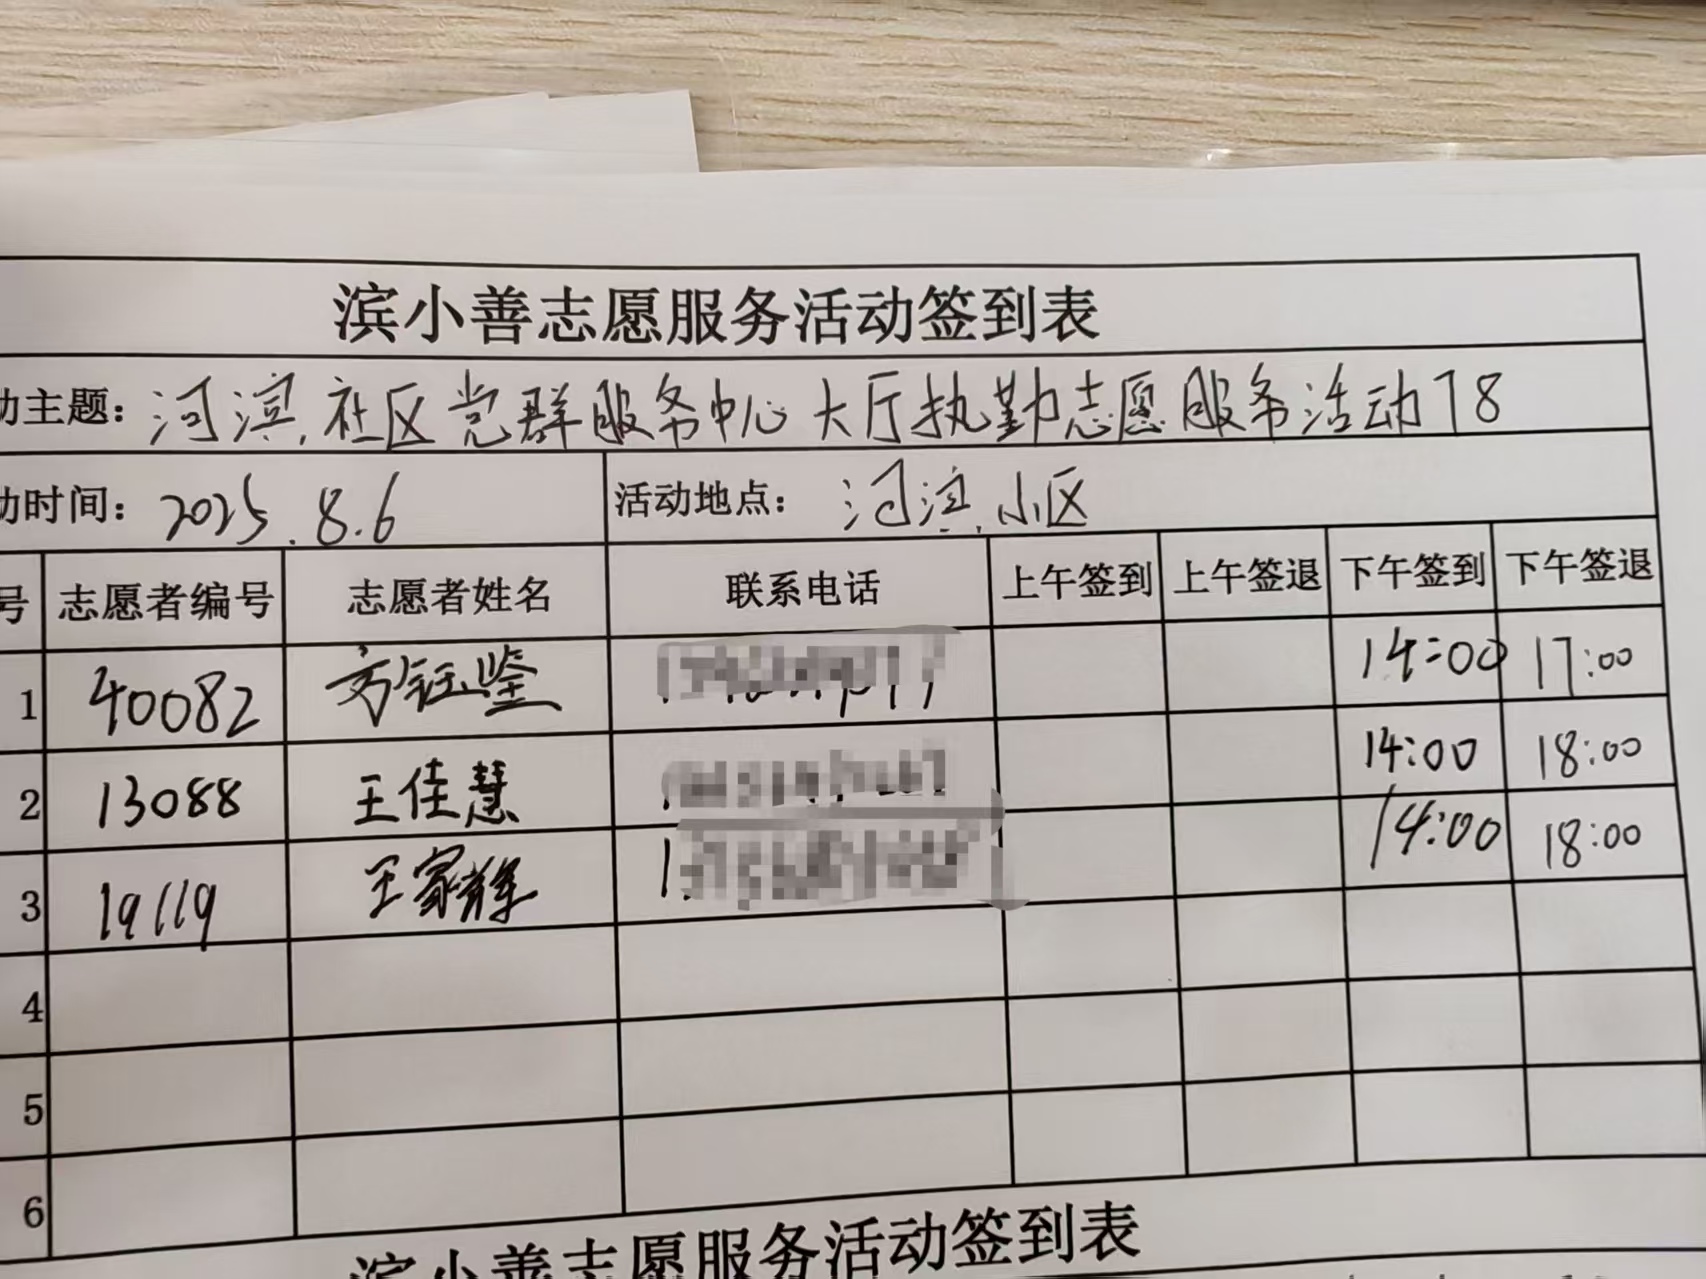 滨小善志愿服务活动签到表
动主题：河滨社区党群服务中心大厅执勤志愿服务活动78
动时间：2025.8.6 活动地点：河滨小区
号 志愿者编号 志愿者姓名 联系电话 上午签到 上午签退 下午签到 下午签退
1 40082 方钰鉴 14:00 17:00
2 13088 王佳慧 14:00 18:00
3 19119 王家辉 14:00 18:00
4
5
6
滨小善志愿服务活动签到表